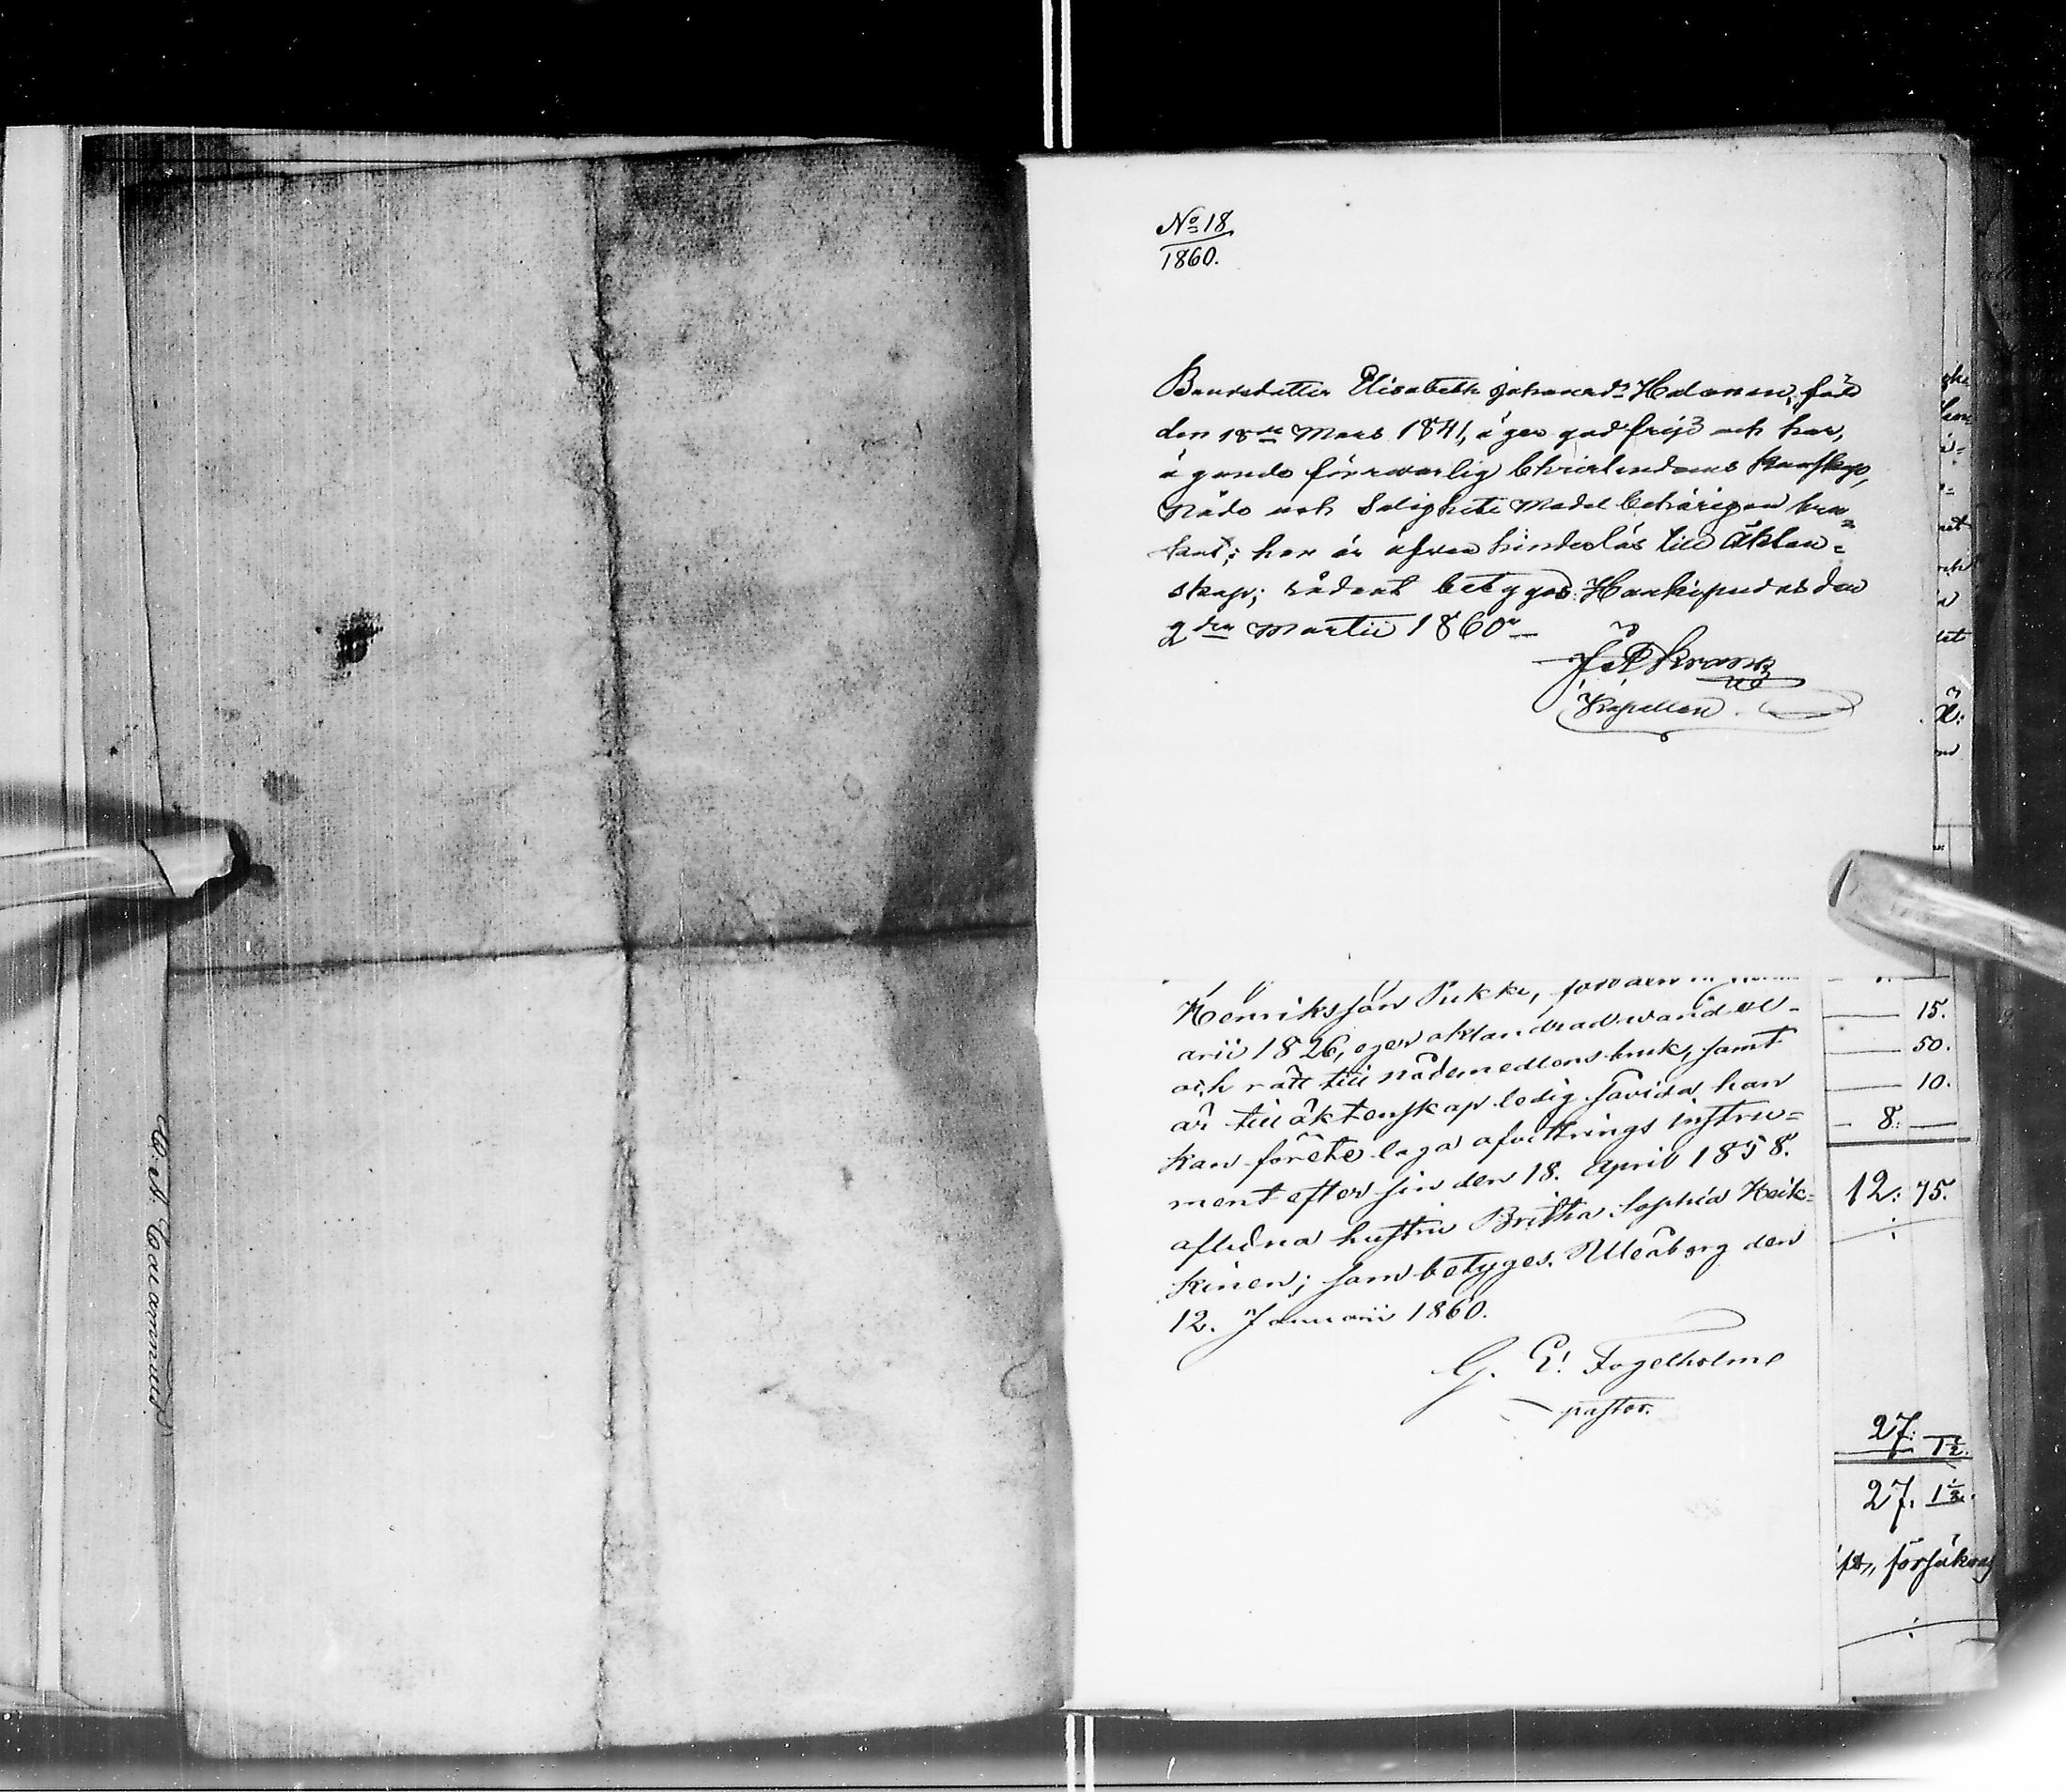 No 18
1860.
Bondedotter Elisabeth Johansdr Halonen, född
den 18de Mars 1841, äger god frejd och har,
ägande försvarlig Christendoms kunskap,
Nåde och Salighets Medel behörigen bru-
kat; hon är äfven hinderlös till Äkten-
skap; sådant betygas. Haukipudas den
2den Martii 1860.
Kapellan.
Henriksson Pukki, född den
arii 1826, eger oklandrad vandel
och rätt till nådemedlens bruk, samt
är till äktenskap ledig såvida han
kan förete laga afvittrings instru=
ment efter sin den 18. April 1858.
aflidna hustru Britha Sophia Heik=
kinen; som betyges. Uleåborg den
12. Januarii 1860.
G. E. Fogelholm
pastor.
15.
50.
10.
8:
12: 75.
27: 1½.
27. 1½.
försäkras